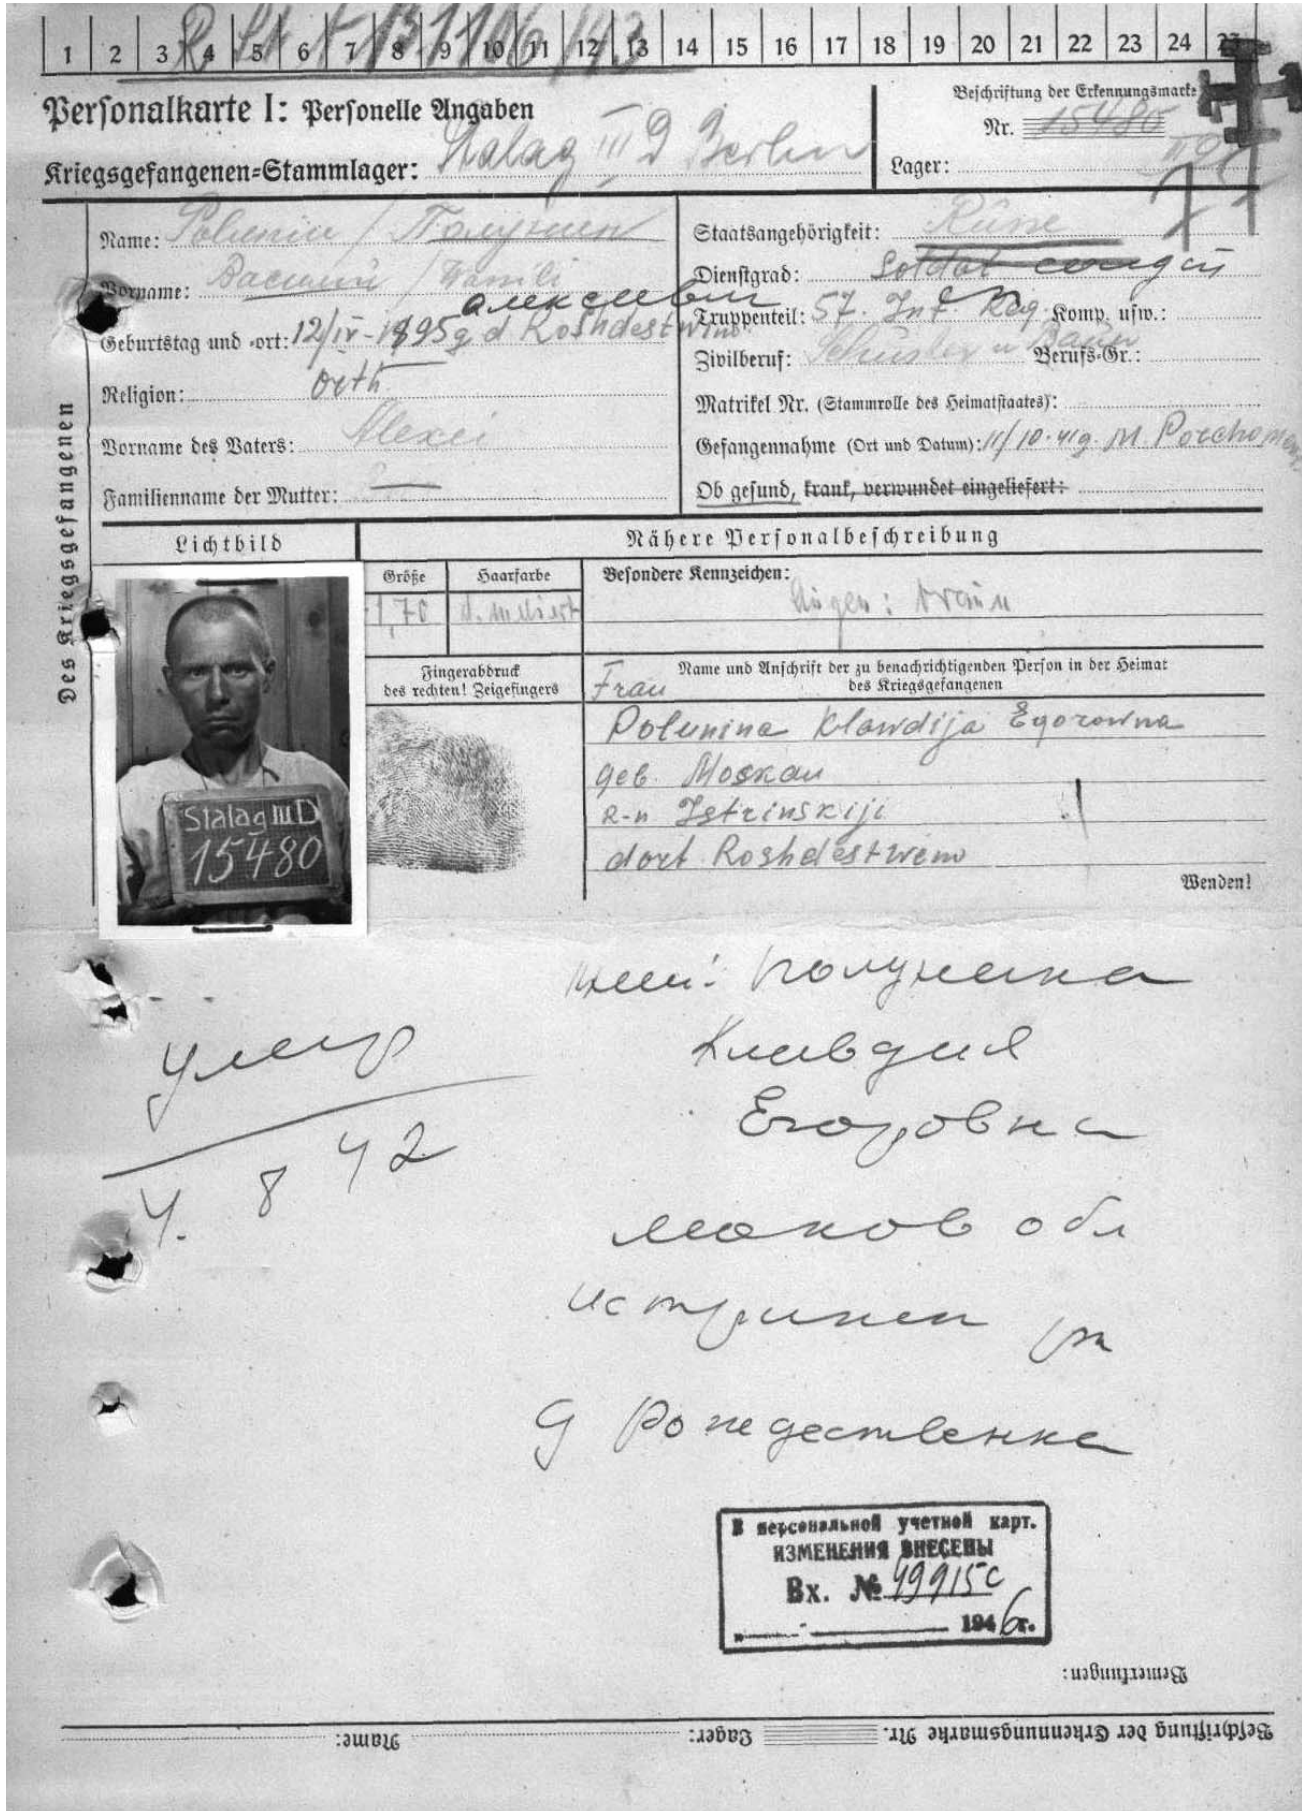 1 2 3 4 5 6 7 8 9 10 11 12 13 14 15 16 17 18 19 20 21 22 23 24 25
Personalkarte I: Personelle Angaben
Kriegsgefangenen-Stammlager: Stalag III D Berlin
Beschriftung der Erkennungsmarke
Nr. 15480
Lager: III D
Des Kriegsgefangenen
Name: Polunin / Полунин
Vorname: Василий / Wasili
алексеевич
Geburtstag und -ort: 12/IV-1895 g d Roshdestweno
Religion: orth.
Vorname des Vaters: Alexei
Familienname der Mutter: ?
Staatsangehörigkeit: Russe
Dienstgrad: Soldat солдат
Truppenteil: 57. Inf. Reg. Komp. usw.:
Zivilberuf: Schuster u Bauer Berufs-Gr.:
Matrikel Nr. (Stammrolle des Heimatstaates):
Gefangennahme (Ort und Datum): 11/10-41g.
Ob gesund, krank, verwundet eingeliefert:
Lichtbild
Nähere Personalbeschreibung
Größe
1,70
Haarfarbe
d. meliert
Besondere Kennzeichen:
Augen: braun
Fingerabdruck
des rechten! Zeigefingers
Name und Anschrift der zu benachrichtigenden Person in der Heimat
des Kriegsgefangenen
Frau
Polunina Klawdija Egorowna
geb. Moskau
R-n Istrinskiji
dort Roshdestweno
Wenden!
Stalag III D
15480
Полунина
Клавдия
Егоровна
москов обл
истринск рн
д Рождественка
умер
4. 8 42
В персональной учетной карт.
ИЗМЕНЕНИЯ ВНЕСЕНЫ
Вх. № 49915с
1946г.
Bemerkungen:
Beschriftung der Erkennungsmarke Nr. Lager: Name: